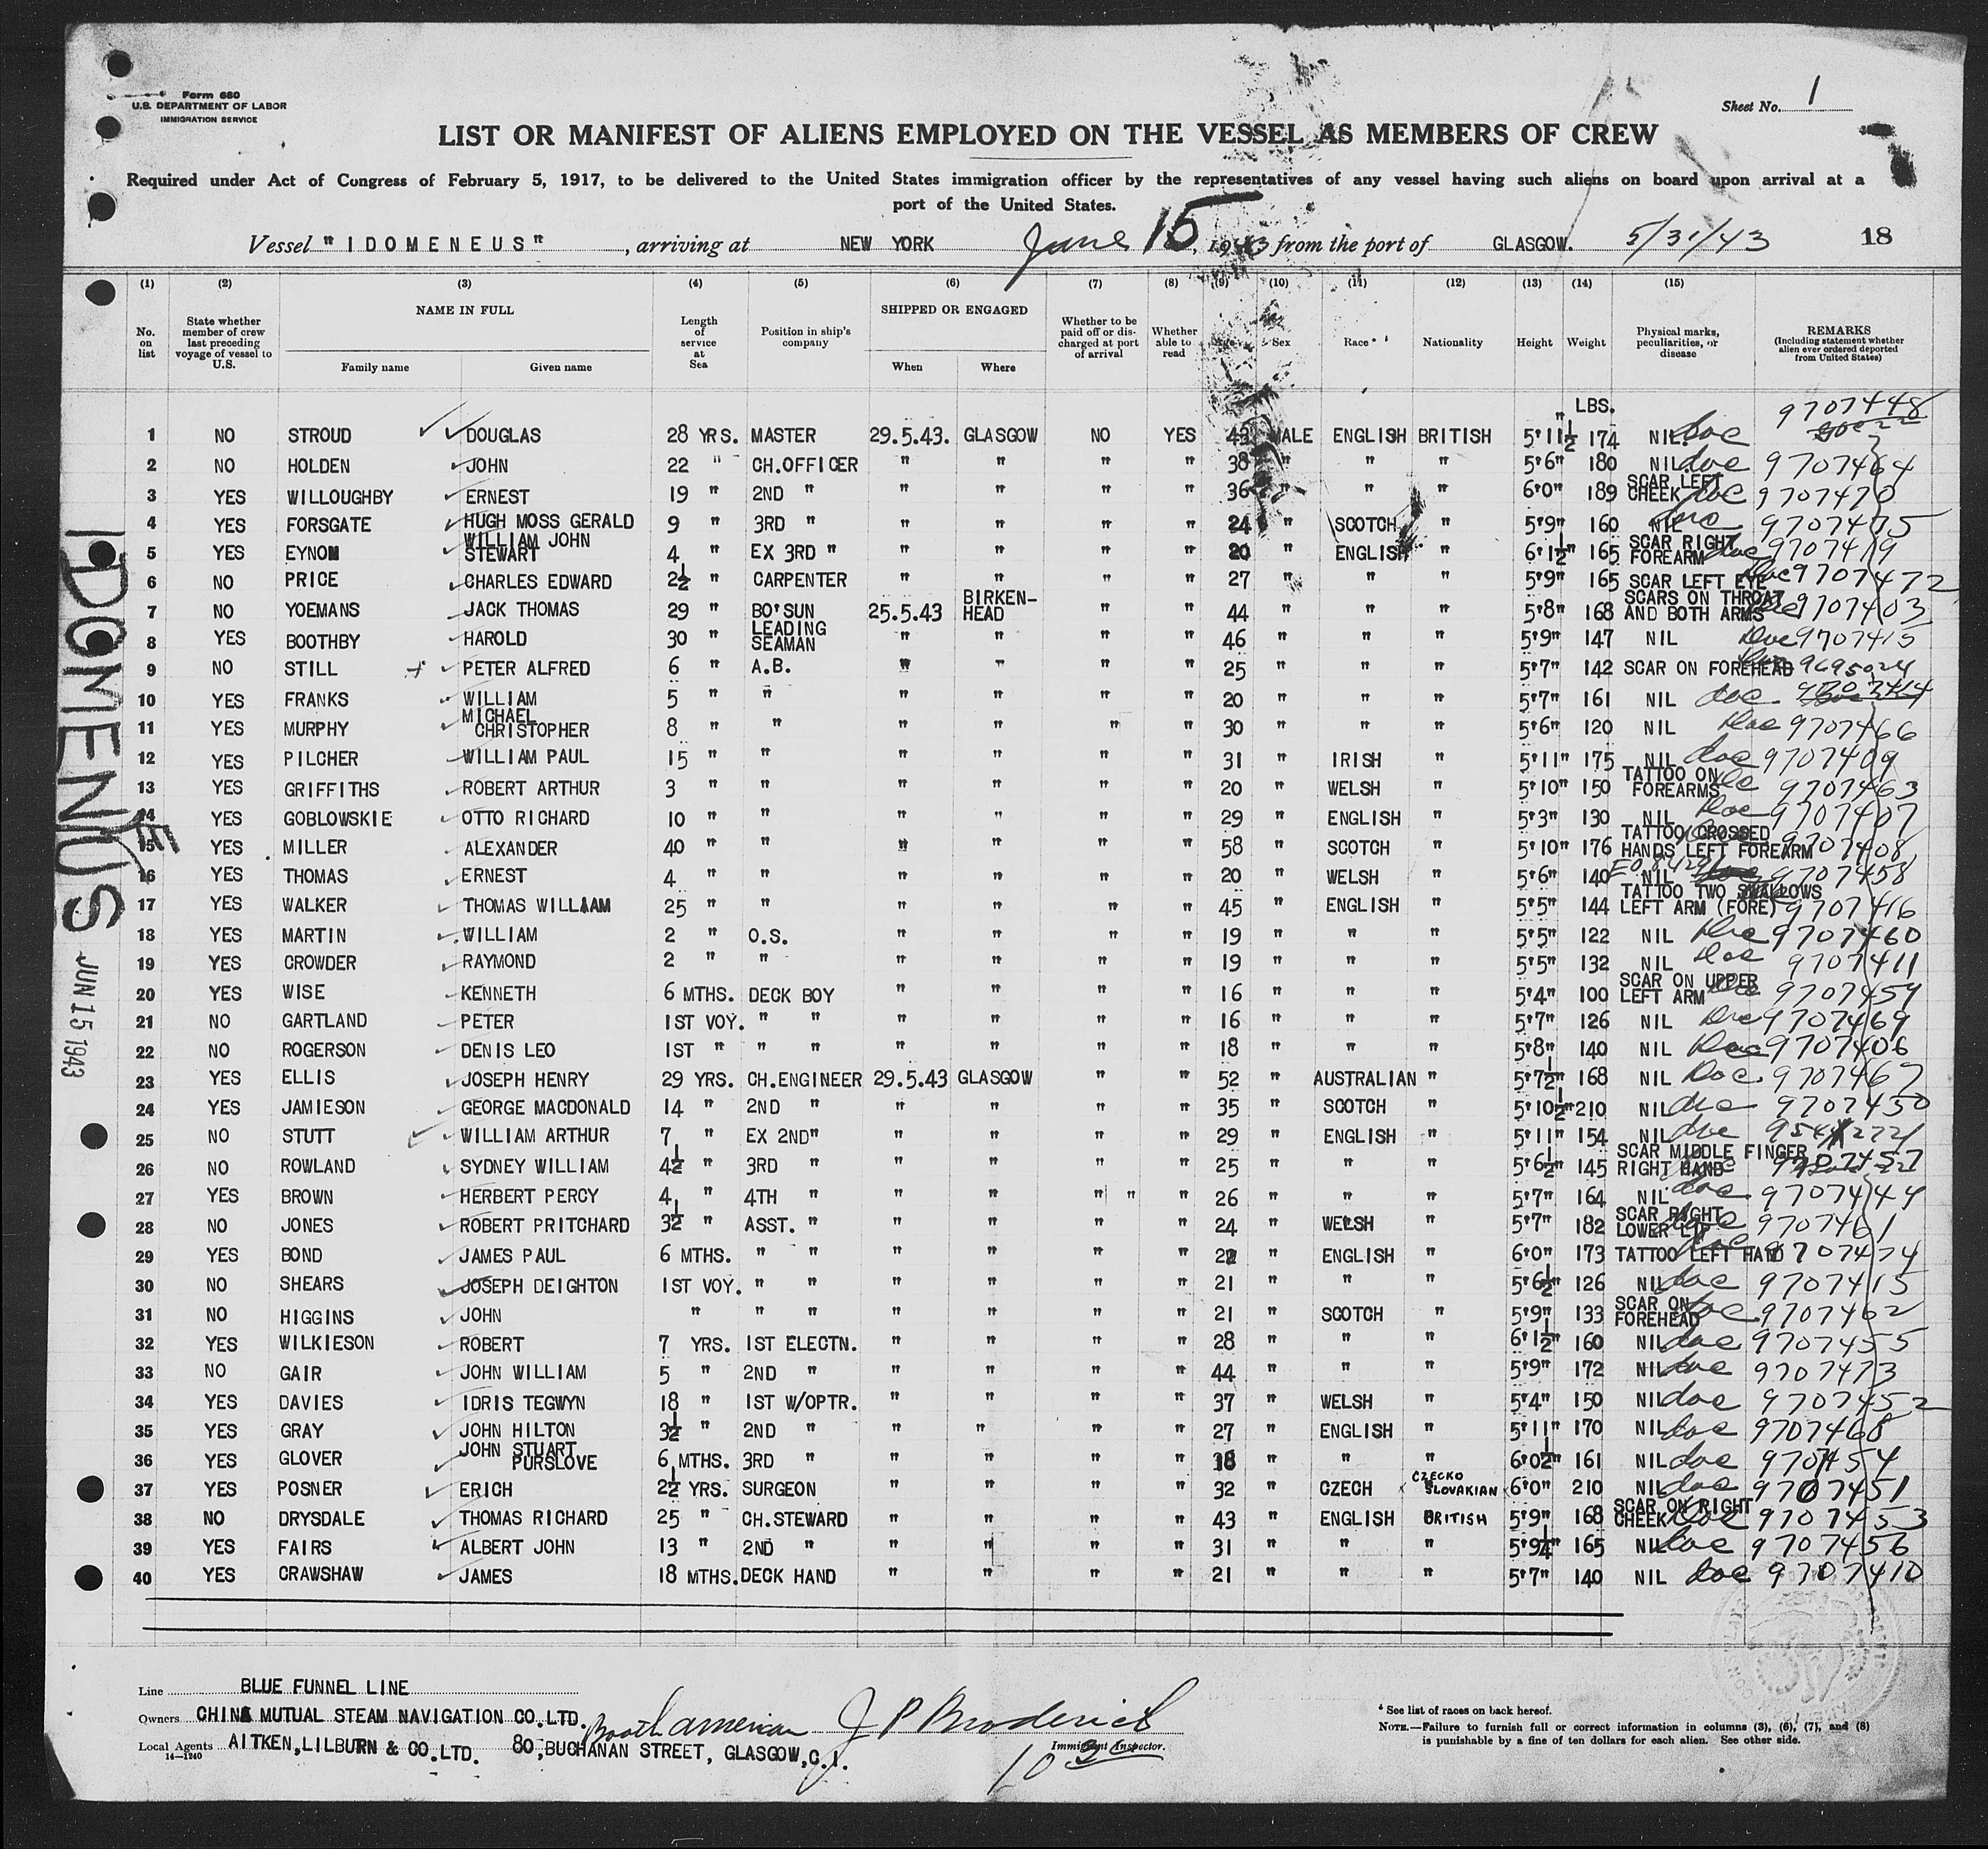 Form 680
U.S. DEPARTMENT OF LABOR
IMMIGRATION SERVICE
Sheet No. 1
LIST OR MANIFEST OF ALIENS EMPLOYED ON THE VESSEL AS MEMBERS OF CREW
Required under Act of Congress of February 5, 1917, to be delivered to the United States immigration officer by the representatives of any vessel having such aliens on board upon arrival at a
port of the United States.
Vessel "IDOMENEUS", arriving at NEW YORK June 15, 1943 from the port of GLASGOW. 5/31/43 18
(1) (2) (3) (4) (5) (6) (7) (8) (9) (10) (11) (12) (13) (14) (15)
No. on list State whether member of crew last preceding voyage of vessel to U.S. NAME IN FULL Family name Given name Length of service at Sea Position in ship's company SHIPPED OR ENGAGED When Where Whether to be paid off or discharged at port of arrival Whether able to read Sex Race* Nationality Height Weight Physical marks, peculiarities, or disease REMARKS (Including statement whether alien ever ordered deported from United States)
LBS.
1 NO STROUD DOUGLAS 28 YRS. MASTER 29.5.43. GLASGOW NO YES 43 MALE ENGLISH BRITISH 5'11½" 174 NIL doc 9707448
2 NO HOLDEN JOHN 22 " CH.OFFICER " " " " 38 " " " 5'6" 180 NIL doc 9707464
3 YES WILLOUGHBY ERNEST 19 " 2ND " " " " " 36 " " " 6'0" 189 SCAR LEFT CHEEK doc 9707470
4 YES FORSGATE HUGH MOSS GERALD 9 " 3RD " " " " " 24 " SCOTCH " 5'9" 160 NIL doc 9707475
5 YES EYNON WILLIAM JOHN STEWART 4 " EX 3RD " " " " " 20 " ENGLISH " 6'1½" 165 SCAR RIGHT FOREARM doc 9707419
6 NO PRICE CHARLES EDWARD 2½ " CARPENTER " " " " 27 " " " 5'9" 165 SCAR LEFT EYE doc 9707472
7 NO YOEMANS JACK THOMAS 29 " BO'SUN 25.5.43 BIRKENHEAD " " 44 " " " 5'8" 168 SCARS ON THROAT AND BOTH ARMS doc 9707403
8 YES BOOTHBY HAROLD 30 " LEADING SEAMAN " " " " 46 " " " 5'9" 147 NIL doc 9707415
9 NO STILL PETER ALFRED 6 " A.B. " " " " 25 " " " 5'7" 142 SCAR ON FOREHEAD 9695024
10 YES FRANKS WILLIAM 5 " " " " " " 20 " " " 5'7" 161 NIL doc 9707414
11 YES MURPHY MICHAEL CHRISTOPHER 8 " " " " " " 30 " " " 5'6" 120 NIL doc 9707466
12 YES PILCHER WILLIAM PAUL 15 " " " " " " 31 " IRISH " 5'11" 175 NIL doc 9707409
13 YES GRIFFITHS ROBERT ARTHUR 3 " " " " " " 20 " WELSH " 5'10" 150 TATTOO ON FOREARMS doc 9707463
14 YES GOBLOWSKIE OTTO RICHARD 10 " " " " " " 29 " ENGLISH " 5'3" 130 NIL doc 9707407
15 YES MILLER ALEXANDER 40 " " " " " " 58 " SCOTCH " 5'10" 176 TATTOO CROSSED HANDS LEFT FOREARM 9707408
16 YES THOMAS ERNEST 4 " " " " " " 20 " WELSH " 5'6" 140 NIL 9707458
17 YES WALKER THOMAS WILLIAM 25 " " " " " " 45 " ENGLISH " 5'5" 144 TATTOO TWO SWALLOWS LEFT ARM (FORE) 9707416
18 YES MARTIN WILLIAM 2 " O.S. " " " " 19 " " " 5'5" 122 NIL doc 9707460
19 YES CROWDER RAYMOND 2 " " " " " " 19 " " " 5'5" 132 NIL doc 9707411
20 YES WISE KENNETH 6 MTHS. DECK BOY " " " " 16 " " " 5'4" 100 SCAR ON UPPER LEFT ARM doc 9707459
21 NO GARTLAND PETER 1ST VOY. " " " " " " 16 " " " 5'7" 126 NIL doc 9707469
22 NO ROGERSON DENIS LEO 1ST " " " " " " " 18 " " " 5'8" 140 NIL doc 9707406
23 YES ELLIS JOSEPH HENRY 29 YRS. CH.ENGINEER 29.5.43 GLASGOW " " 52 " AUSTRALIAN " 5'7½" 168 NIL doc 9707467
24 YES JAMIESON GEORGE MACDONALD 14 " 2ND " " " " " 35 " SCOTCH " 5'10½" 210 NIL doc 9707450
25 NO STUTT WILLIAM ARTHUR 7 " EX 2ND " " " " " 29 " ENGLISH " 5'11" 154 NIL doc
26 NO ROWLAND SYDNEY WILLIAM 4½ " 3RD " " " " " 25 " " " 5'6½" 145 SCAR MIDDLE FINGER RIGHT HAND 9707457
27 YES BROWN HERBERT PERCY 4 " 4TH " " " " " " 26 " " " 5'7" 164 NIL doc 9707444
28 NO JONES ROBERT PRITCHARD 3½ " ASST. " " " " " 24 " WELSH " 5'7" 182 SCAR RIGHT LOWER LIP doc 9707461
29 YES BOND JAMES PAUL 6 MTHS. " " " " " " 22 " ENGLISH " 6'0" 173 TATTOO LEFT HAND 9707474
30 NO SHEARS JOSEPH DEIGHTON 1ST VOY. " " " " " " 21 " " " 5'6½" 126 NIL doc 9707415
31 NO HIGGINS JOHN " " " " " " " 21 " SCOTCH " 5'9" 133 SCAR ON FOREHEAD doc 9707462
32 YES WILKIESON ROBERT 7 YRS. 1ST ELECTN. " " " " 28 " " " 6'1½" 160 NIL doc 9707455
33 NO GAIR JOHN WILLIAM 5 " 2ND " " " " " 44 " " " 5'9" 172 NIL doc 9707473
34 YES DAVIES IDRIS TEGWYN 18 " 1ST W/OPTR. " " " " 37 " WELSH " 5'4" 150 NIL doc 9707452
35 YES GRAY JOHN HILTON 3½ " 2ND " " " " " 27 " ENGLISH " 5'11" 170 NIL doc 9707468
36 YES GLOVER JOHN STUART PURSLOVE 6 MTHS. 3RD " " " " " 18 " " " 6'0½" 161 NIL doc 9707454
37 YES POSNER ERICH 2½ YRS. SURGEON " " " " 32 " CZECH CZECKO SLOVAKIAN 6'0" 210 NIL doc 9707451
38 NO DRYSDALE THOMAS RICHARD 25 " CH.STEWARD " " " " 43 " ENGLISH BRITISH 5'9" 168 SCAR ON RIGHT CHEEK doc 9707453
39 YES FAIRS ALBERT JOHN 13 " 2ND " " " " " 31 " " " 5'9¼" 165 NIL doc 9707456
40 YES CRAWSHAW JAMES 18 MTHS. DECK HAND " " " " 21 " " " 5'7" 140 NIL doc 9707410
IDOMENEUS
JUN 15 1943
Line BLUE FUNNEL LINE
Owners CHINA MUTUAL STEAM NAVIGATION CO.LTD.
Local Agents AITKEN,LILBURN & CO.LTD. 80,BUCHANAN STREET, GLASGOW,C.1.
14—1240
Booth American
J P Broderick
Immigrant Inspector.
* See list of races on back hereof.
NOTE.—Failure to furnish full or correct information in columns (3), (6), (7), and (8)
is punishable by a fine of ten dollars for each alien. See other side.